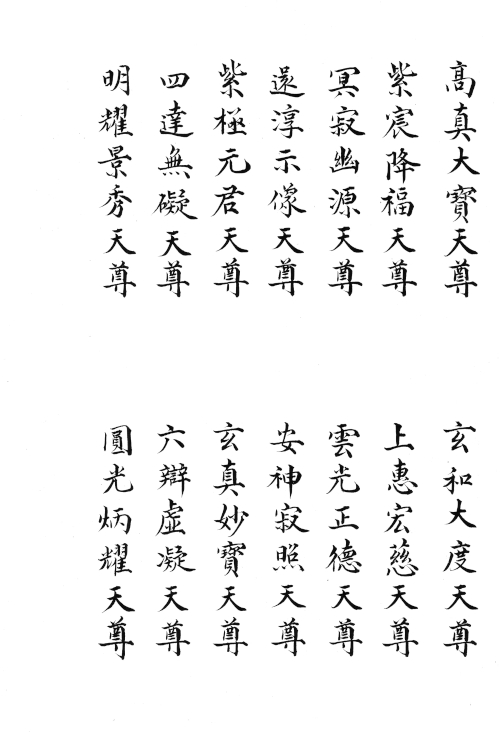 高真大寶天尊
玄和大度天尊
紫宸降福天尊
上惠宏慈天尊
冥寂幽源天尊
雲光正德天尊
還淳示像天尊
安神寂照天尊
紫極元君天尊
玄真妙寶天尊
四達無礙天尊
六辯虛凝天尊
明耀景秀天尊
圓光炳耀天尊